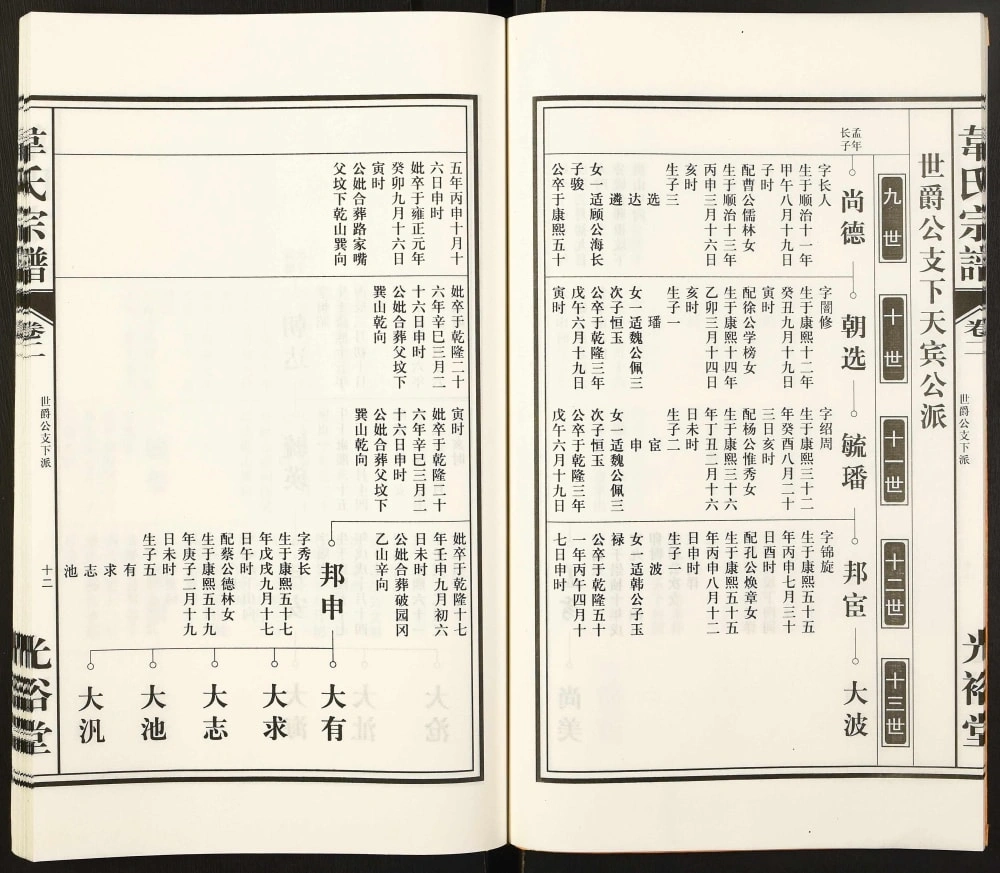 韋氏宗譜
卷二
世爵公支下派
光裕堂
世爵公支下天宾公派
九世
十世
十一世
十二世
十三世
孟年
长子
尚德
字长人
生于顺治十一年
甲午八月十九日
子时
配曹公儒林女
生于顺治十三年
丙申三月十六日
亥时
生子三
选
达
遴
女一适顾公海长
子骏
公卒于康熙五十
朝选
字闇修
生于康熙十二年
癸丑九月十九日
寅时
配徐公学榜女
生于康熙十四年
乙卯三月十四日
亥时
生子一
璠
女一适魏公佩三
次子恒玉
公卒于乾隆三年
戊午六月十九日
寅时
毓璠
字绍周
生于康熙三十二
年癸酉八月二十
三日亥时
配杨公惟秀女
生于康熙三十六
年丁丑二月十六
日未时
生子二
宦
申
女一适魏公佩三
次子恒玉
公卒于乾隆三年
戊午六月十九日
邦宦
字锦旋
生于康熙五十五
年丙申七月三十
日酉时
配孔公焕章女
生于康熙五十五
年丙申八月十二
日申时
生子一
波
女一适韩公子玉
禄
公卒于乾隆五十
一年丙午四月十
七日申时
大波
五年丙申十月十
六日申时
妣卒于雍正元年
癸卯九月十六日
寅时
公妣合葬路家嘴
父坟下乾山巽向
妣卒于乾隆二十
六年辛巳三月二
十六日申时
公妣合葬父坟下
巽山乾向
寅时
妣卒于乾隆二十
六年辛巳三月二
十六日申时
公妣合葬父坟下
巽山乾向
妣卒于乾隆十七
年壬申九月初六
日未时
公妣合葬破园冈
乙山辛向
邦申
字秀长
生于康熙五十七
年戊戌九月十七
日午时
配蔡公德林女
生于康熙五十九
年庚子二月十九
日未时
生子五
有
求
志
池
大有
大求
大志
大池
大汎
韋氏宗譜
卷二
世爵公支下派
十二
光裕堂